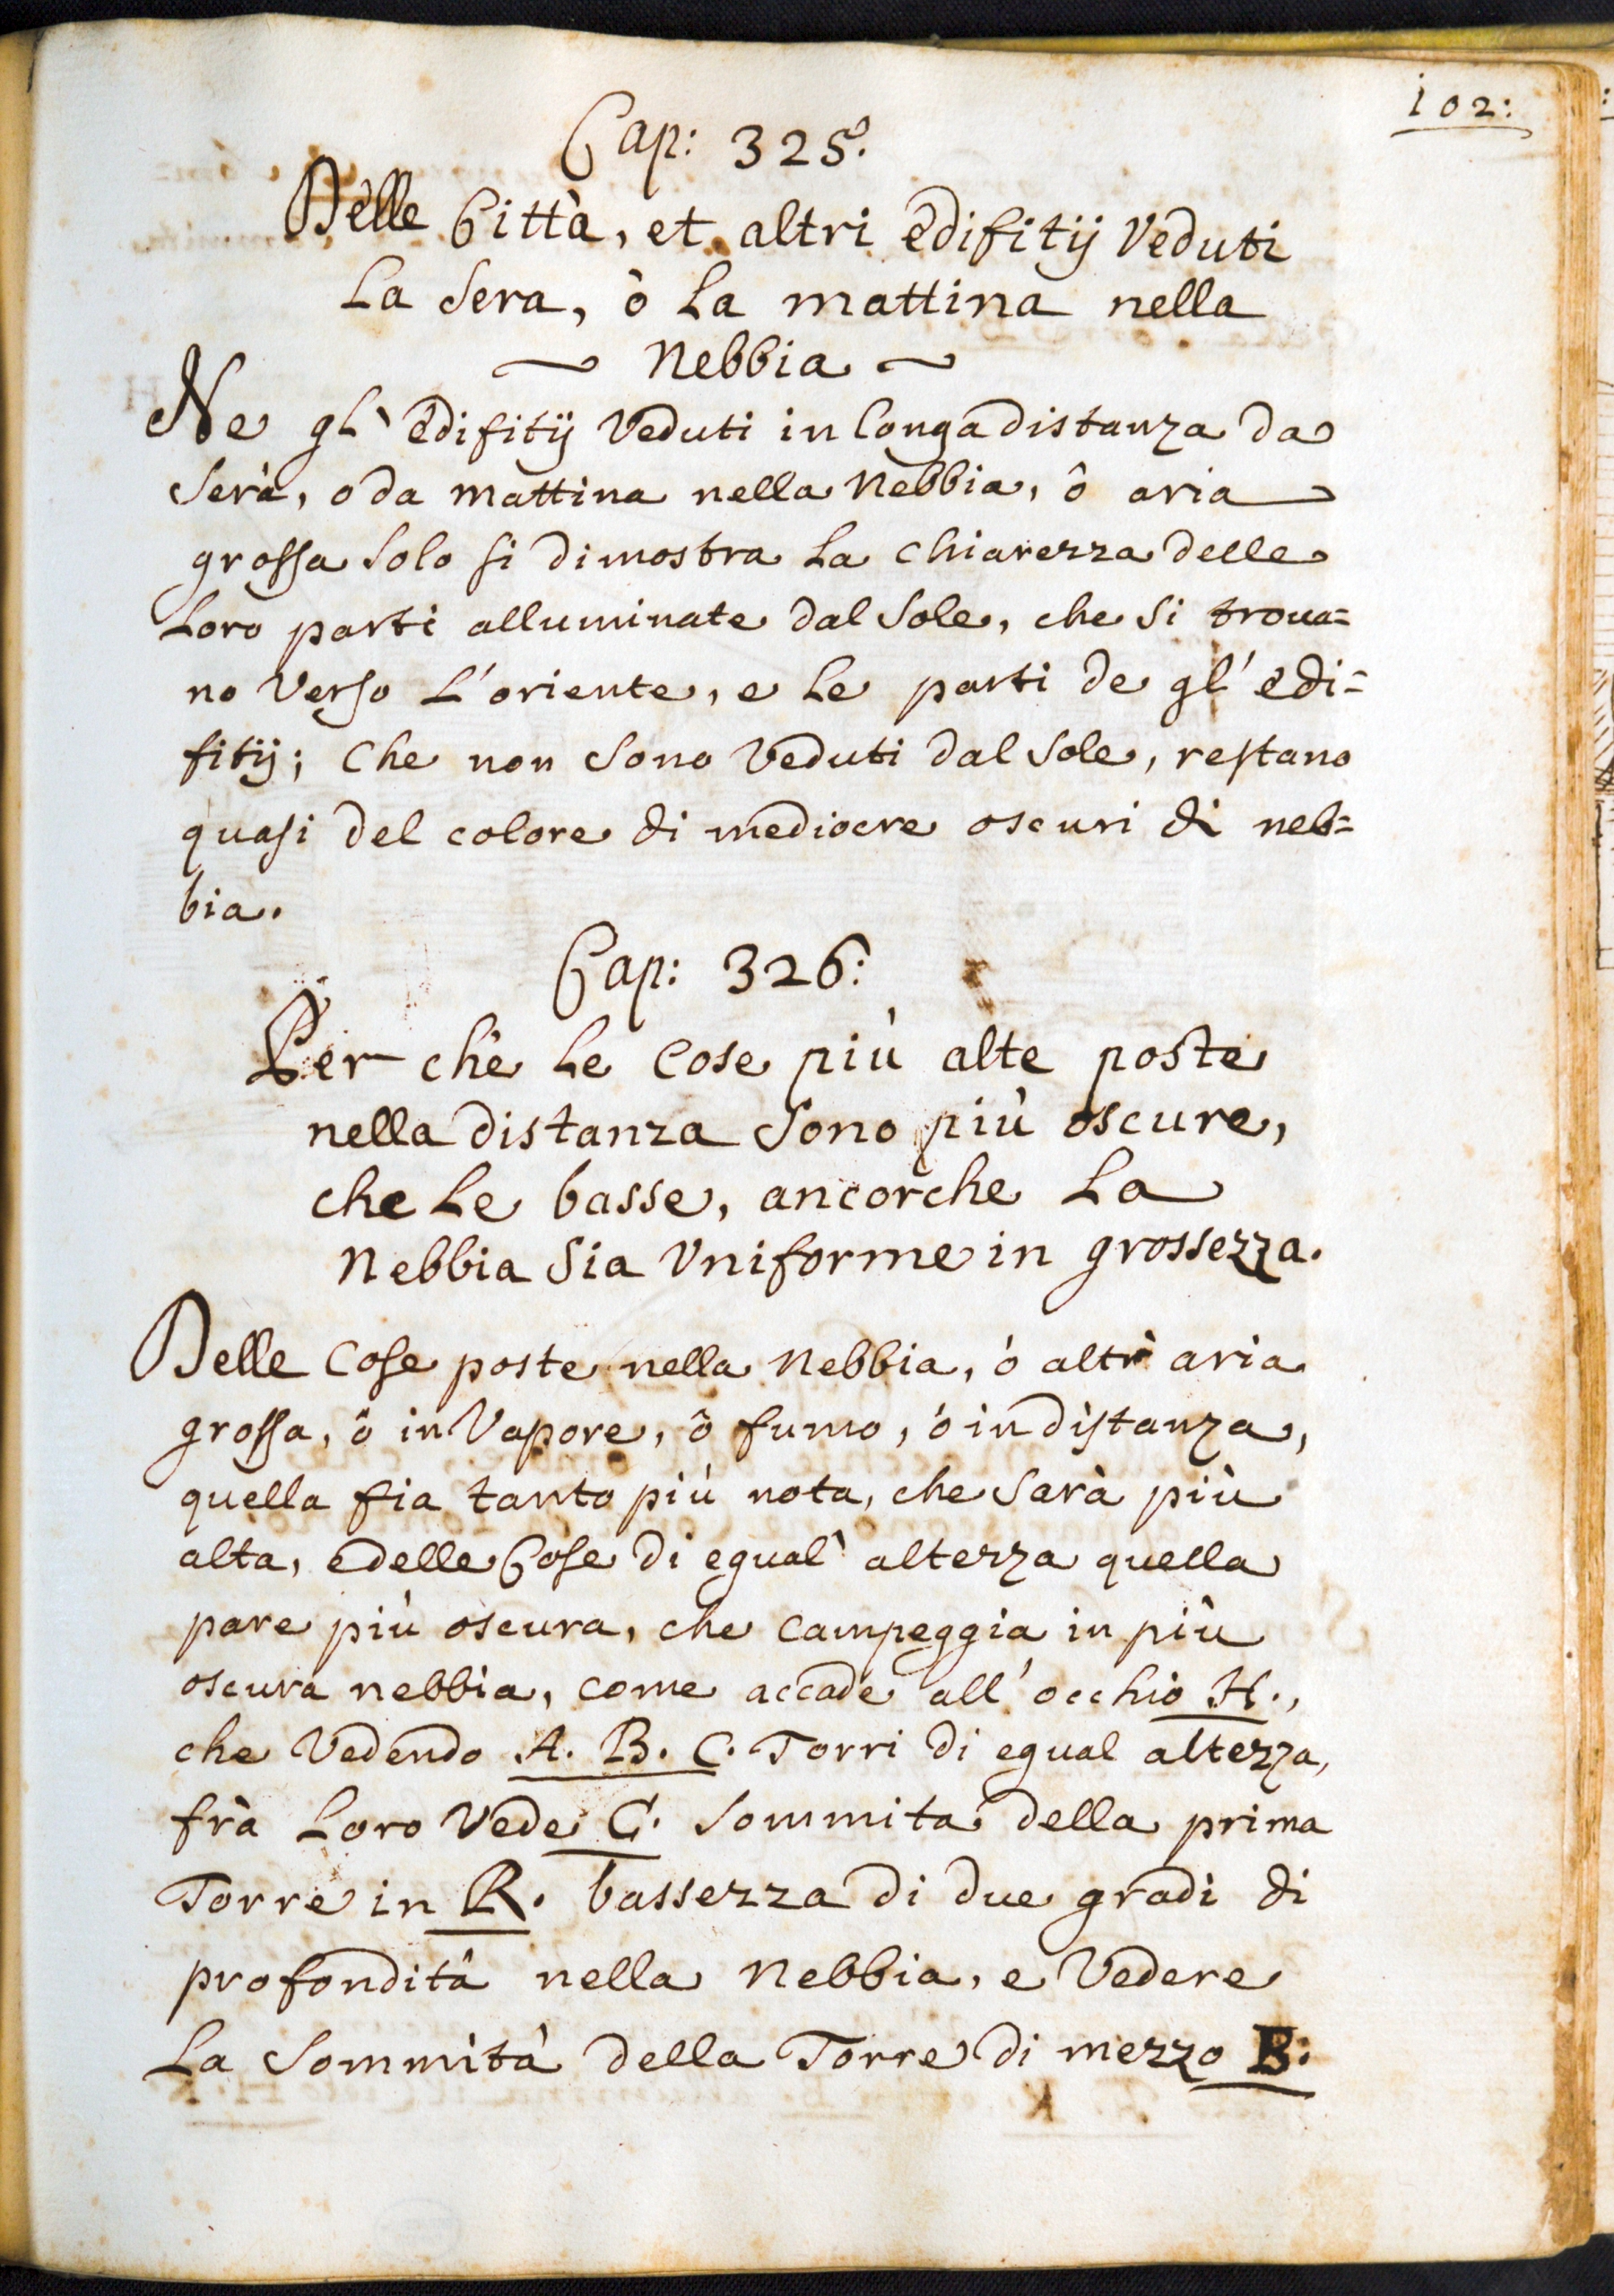 102:
Cap: 325:
Delle Città, et altri edifitij Veduti
La Sera, ò La mattina nella
~ Nebbia ~
Ne gl' edifitij Veduti in longa distanza da
Serà, o da mattina nella Nebbia, ô aria
grossa Solo si dimostra La chiarezza delle
Loro parti alluminate dal Sole, che Si troua=
no Verso L'oriente, e Le parti de gl' edi=
fitij; Che non Sono Veduti dal Sole, restano
quasi del colore di mediocre oscuri di neb=
bia.
Cap: 326:
Per chè Le Cose più alte poste
nella distanza Sono più oscure,
che Le basse, ancorche La
Nebbia Sia Vniforme in grossezza.
Delle Cose poste nella Nebbia, ò altr' aria
grossa, ô in Vapore, ô fumo, ò in distanza,
quella fia tanto più nota, che Sarà più
alta, e delle Cose di egual' altezza quella
pare più oscura, che campeggia in più
oscura nebbia, come accade all' occhio H.,
che Vedendo A. B. C. Torri di egual altezza,
frà Loro Vede C. Sommità della prima
Torre in R. bassezza di due gradi di
profondità nella Nebbia, e Vedere
La Sommità della Torre di mezzo B: